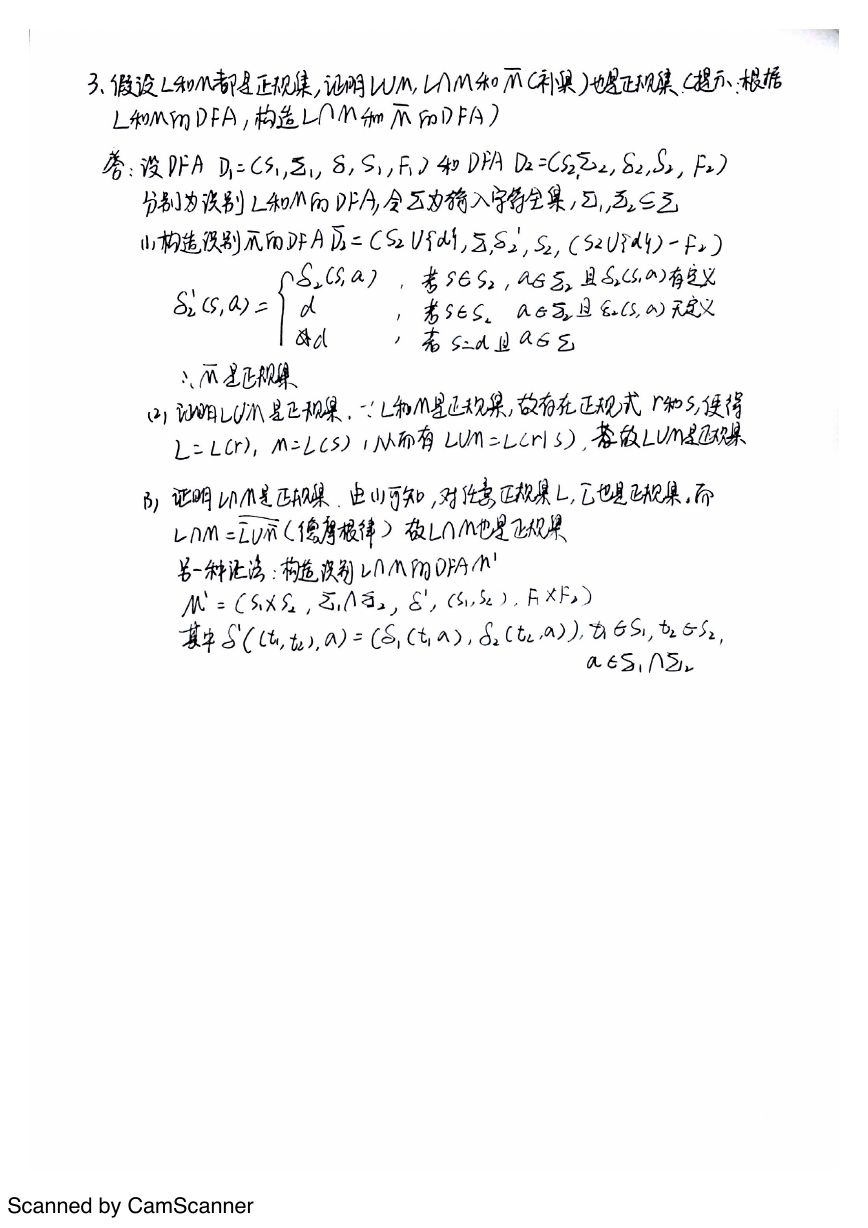 3、假设L和M都是正规集,证明L∪M, L∩M和 M̅ (补集)也是正规集(提示:根据
L和M的DFA,构造L∩M和 M̅ 的DFA)
答:设DFA D₁=(S₁,Σ₁, δ, S₁, F₁) 和 DFA D₂=(S₂,Σ₂, δ₂, S₂, F₂)
分别为识别L和M的DFA,令Σ为输入字符全集,Σ₁,Σ₂⊆Σ
(1)构造识别M̅的DFA D̅₂=(S₂∪{d}, Σ, δ₂', S₂, (S₂∪{d})-F₂)
δ₂'(s,a)= { δ₂(s,a) , 若s∈S₂, a∈Σ₂且δ₂(s,a)有定义
d , 若s∈S₂ a∈Σ₂且δ₂(s,a)无定义
d , 若s=d且a∈Σ
∴ M̅是正规集
(2) 证明L∪M是正规集. ∵L和M是正规集,故存在正规式 r和s,使得
L=L(r), M=L(s) , 从而有 L∪M=L(r|s), 故L∪M是正规集
(3) 证明L∩M是正规集. 由(1)可知,对任意正规集L, L̅也是正规集.而
L∩M=L̅∪M̅ (德摩根律) 故L∩M也是正规集
另一种证法:构造识别L∩M的DFA M'
M'=(S₁×S₂, Σ₁∩Σ₂, δ', (S₁,S₂), F₁×F₂)
其中δ'((t₁,t₂),a)=(δ₁(t,a), δ₂(t₂,a)), t₁∈S₁, t₂∈S₂,
a∈Σ₁∩Σ₂
Scanned by CamScanner